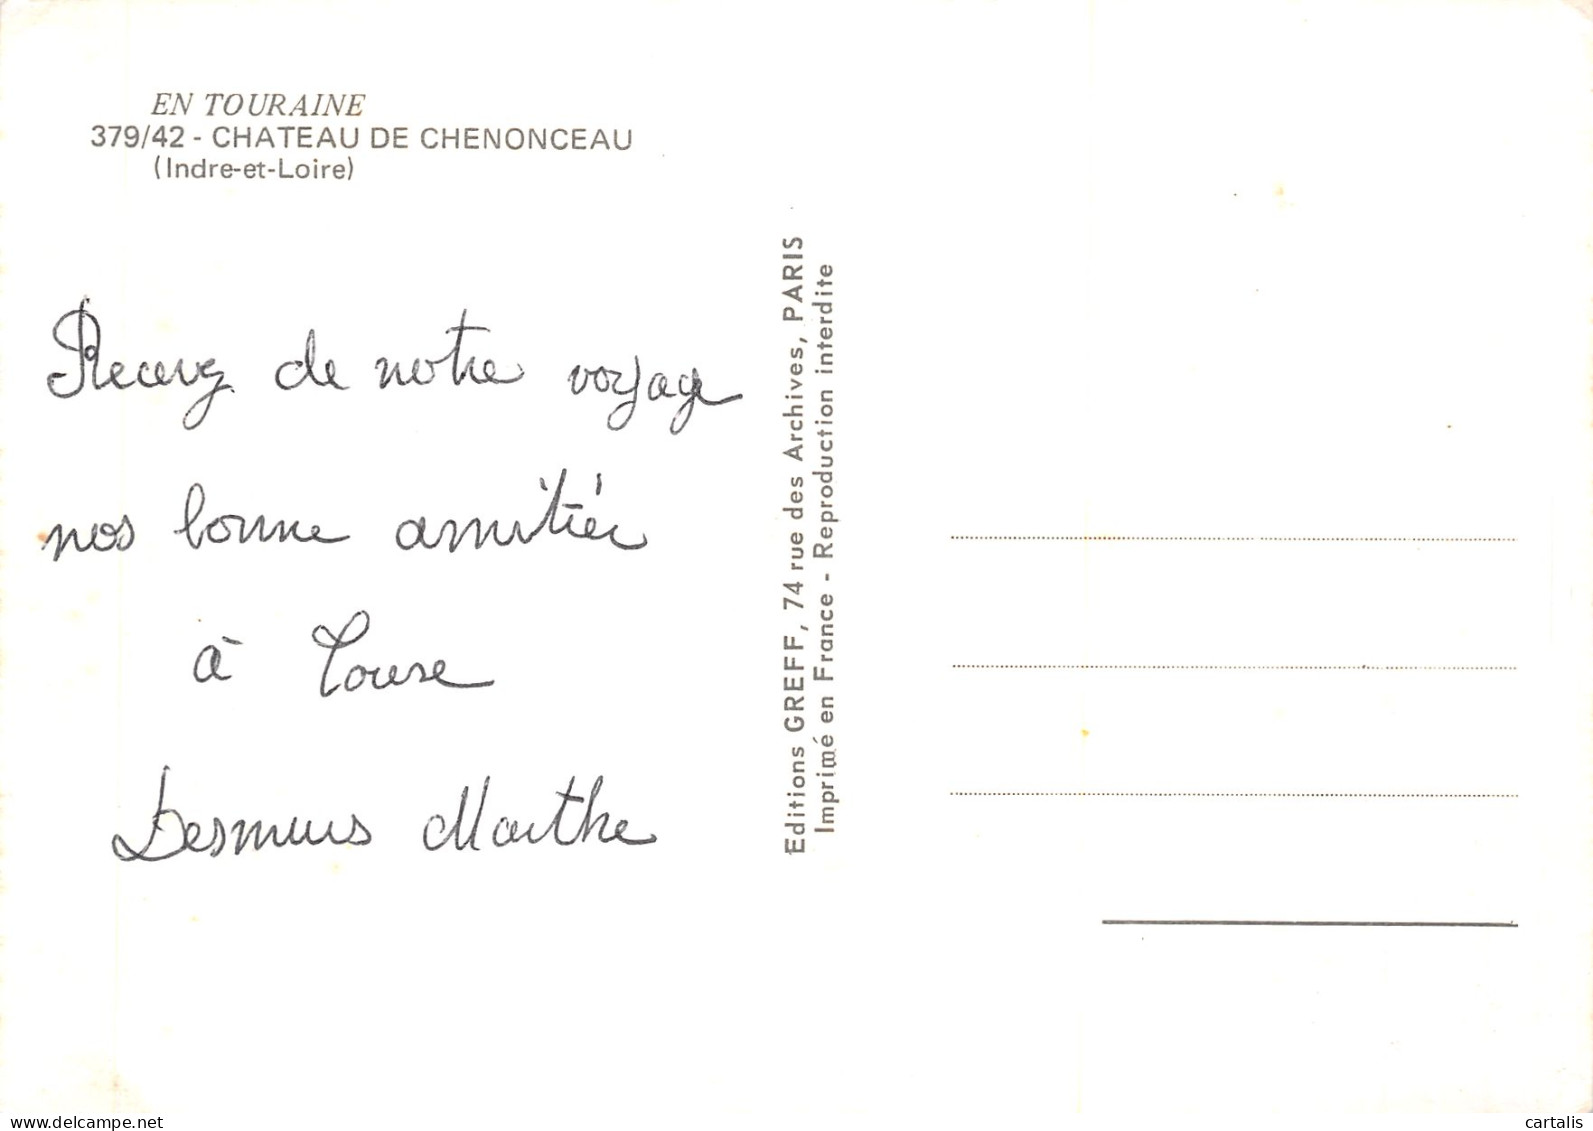 EN TOURAINE
379/42 - CHATEAU DE CHENONCEAU
(Indre-et-Loire)
Recevez de notre voyage
nos bonne amitiés
à
Desmurs Marthe
Editions GREFF, 74 rue des Archives, PARIS
Imprimé en France - Reproduction interdite
www.delcampe.net
cartalis